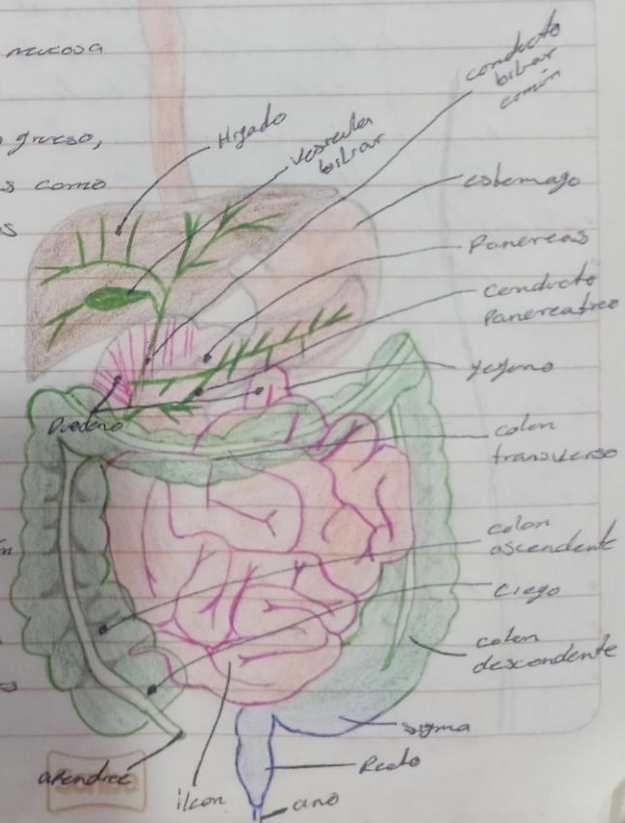 mucosa
grueso,
s como
s
Higado
vesicula
biliar
conducto
biliar
común
estomago
Pancreas
conducto
Pancreatico
yeyuno
Duodeno
colon
transverso
colon
ascendente
ciego
colon
descendente
sigma
Recto
ano
ileon
apendice